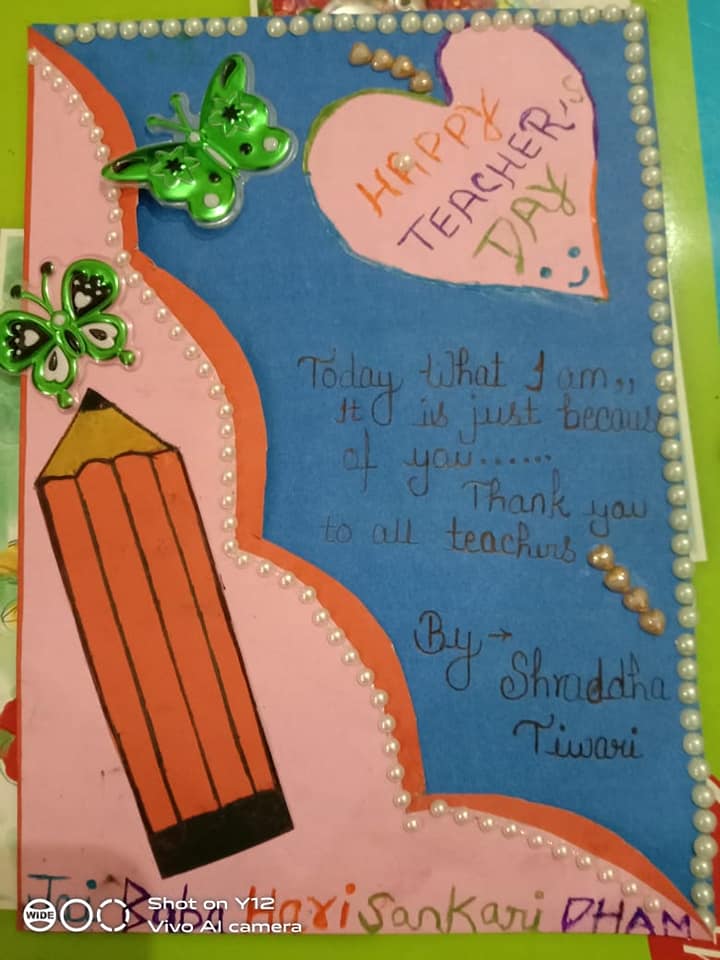 HAPPY
TEACHER'S
DAY
Today What I am,,
It is just becaus
of you......
Thank you
to all teachers
By →
Shraddha
Tiwari
Jai Baba Hari Sankari DHAM
WIDE
Shot on Y12
Vivo AI camera